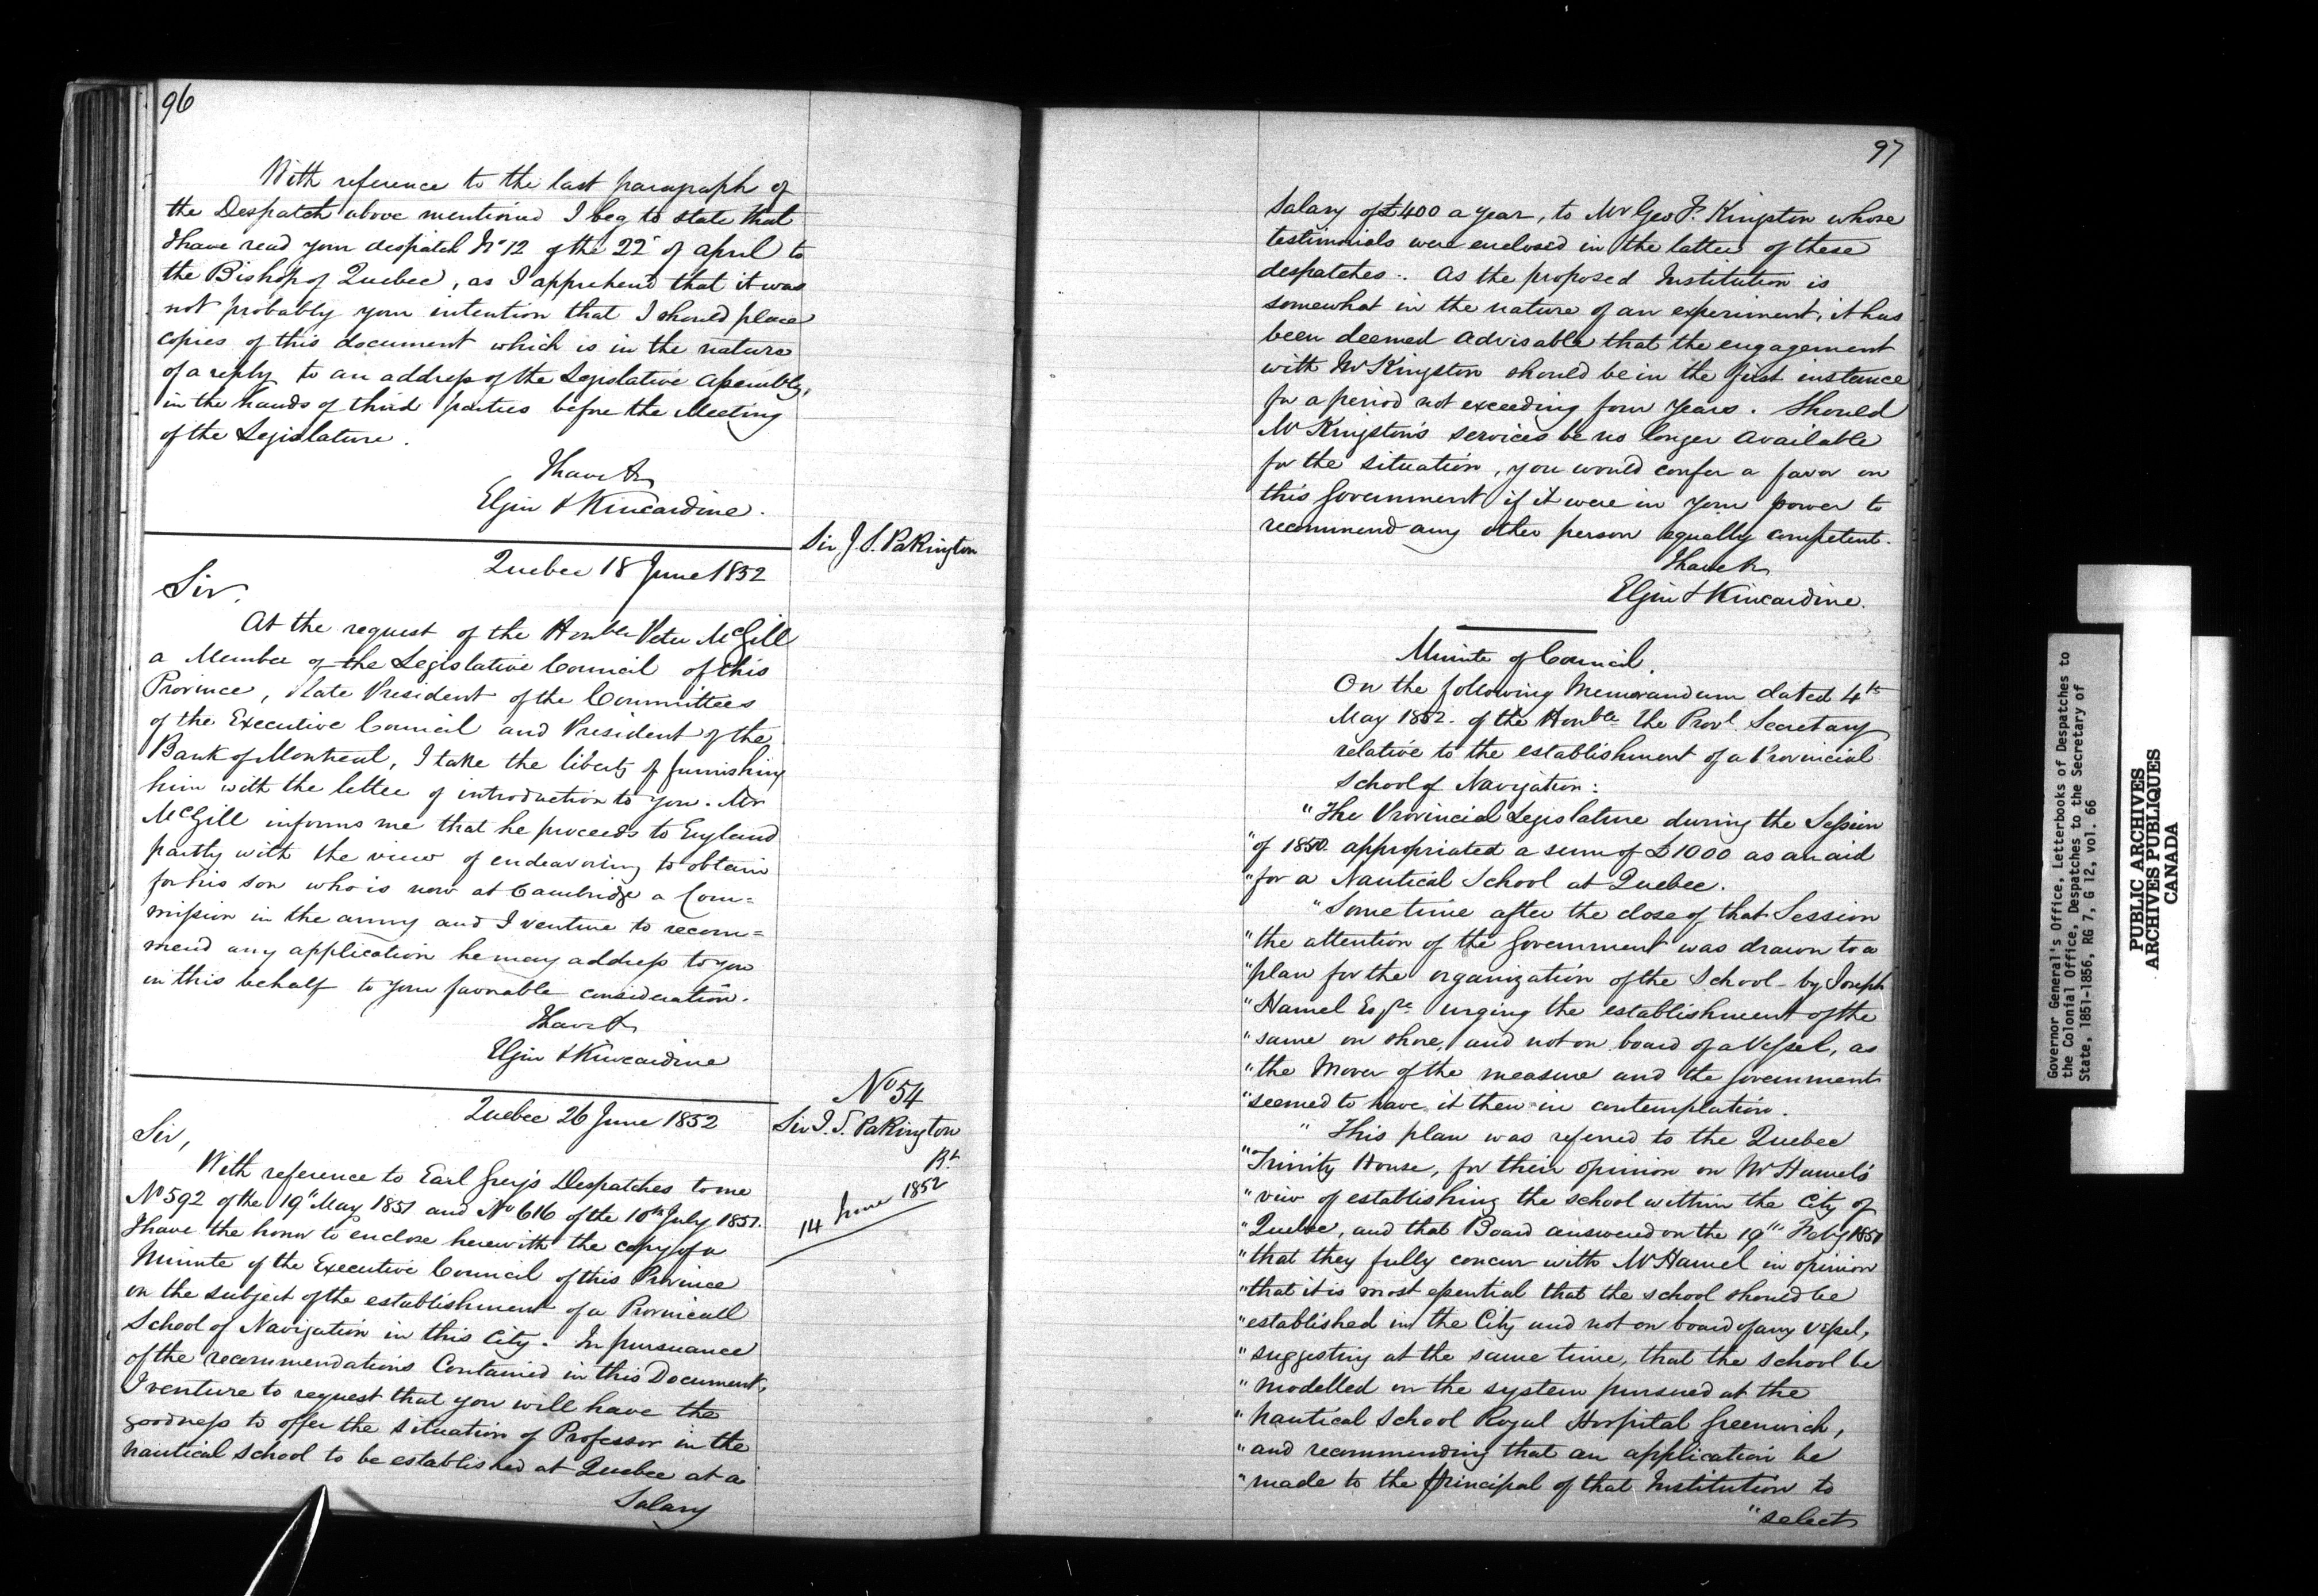 96
With reference to the last paragraph of
the Despatch above mentioned I beg to state that
I have read your despatch No 12 of the 22d of April to
the Bishop of Quebec, as I apprehend that it was
not probably your intention that I should place
copies of this document which is in the nature
of a reply to an address of the Legislative Assembly,
in the hands of third parties before the Meeting
of the Legislature.
I have &c
Elgin & Kincardine.
Sir J. S. Pakington
Quebec 18 June 1852
Sir,
At the request of the Honble Peter McGill
a Member of the Legislative Council of this
Province, late President of the Committees
of the Executive Council and President of the
Bank of Montreal, I take the liberty of furnishing
him with the letter of introduction to you. Mr
McGill informs me that he proceeds to England
partly with the view of endeavoring to obtain
for his son who is now at Cambridge a Com=
mission in the army and I venture to recom=
mend any application he may address to you
in this behalf to your favorable consideration.
I have &c
Elgin & Kincardine
No 54
Sir J. S. Pakington
Bt
14 June 1852
Quebec 26 June 1852
Sir,
With reference to Earl Grey's Despatches to me
No 592 of the 19th May 1851 and No 616 of the 10th July 1851.
I have the honor to enclose herewith the copy of a
Minute of the Executive Council of this Province
on the subject of the establishment of a Provincall
School of Navigation in this City. In pursuance
of the recommendations Contained in this Document,
I venture to request that you will have the
goodness to offer the situation of Professor in the
Nautical School to be established at Quebec at a
Salary
97
Salary of £400 a year, to Mr Geo F. Kingston whose
testimonials were enclosed in the latter of these
despatches. As the proposed Institution is
somewhat in the nature of an experiment, it has
been deemed advisable that the engagement
with Mr Kingston should be in the first instance
for a period not exceeding four years. Should
Mr Kingston's services be no longer available
for the situation, you would confer a favor on
this Government if it were in your power to
recommend any other person equally competent.
I have &c
Elgin & Kincardine.
Minute of Council.
On the following Memorandum dated 4th
May 1852. of the Honble the Provl Secretary
relative to the establishment of a Provincial
School of Navigation:
"The Provincial Legislature during the Session
"of 1850. appropriated a sum of £1000 as an aid
"for a Nautical School at Quebec.
"Some time after the close of that Session
"the attention of the Government was drawn to a
"plan for the organization of the School - by Joseph
"Hamel Esqre urging the establishment of the
"same on shore, and not on board of a Vessel, as
"the Mover of the measure and the Government
"seemed to have it then in contemplation.
" This plan was referred to the Quebec
"Trinity House, for their opinion on Mr Hamel's
"view of establishing the school within the City of
"Quebec, and that Board answered on the 19th Feby 1851
"that they fully concur with Mr Hamel in opinion
"that it is most essential that the school should be
"established in the City and not on board of any Vessel,
"suggesting at the same time, that the school be
"modelled on the system pursued at the
"Nautical School Royal Hospital Greenwich,
"and recommending that an application be
"made to the Principal of that Institution to
"select
Governor General's Office, Letterbooks of Despatches to
the Colonial Office, Despatches to the Secretary of
State, 1851-1856, RG 7, G 12, vol. 66
PUBLIC ARCHIVES
ARCHIVES PUBLIQUES
CANADA